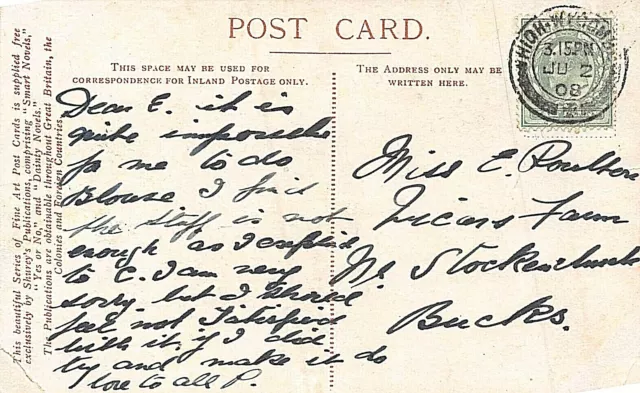 POST CARD.
THIS SPACE MAY BE USED FOR
CORRESPONDENCE FOR INLAND POSTAGE ONLY.
THE ADDRESS ONLY MAY BE
WRITTEN HERE.
This beautiful Series of Fine Art Post Cards is supplied free
exclusively by Shurey's Publications, comprising "Smart Novels,"
"Yes or No," and "Dainty Novels."
The Publications are obtainable throughout Great Britain, the
Colonies and Foreign Countries.
HIGH WYCOMBE
3.15PM
JU 2
08
Dear E. it is
quite impossible
for me to do
Blouse I find
the stuff is not
enough as I explained
to C. I am very
sorry but I should
feel not satisfied
with it if I did
try and make it do
love to all P.
Miss E. Poulton
Vicars Farm
Nr Stokenchurch
Bucks.